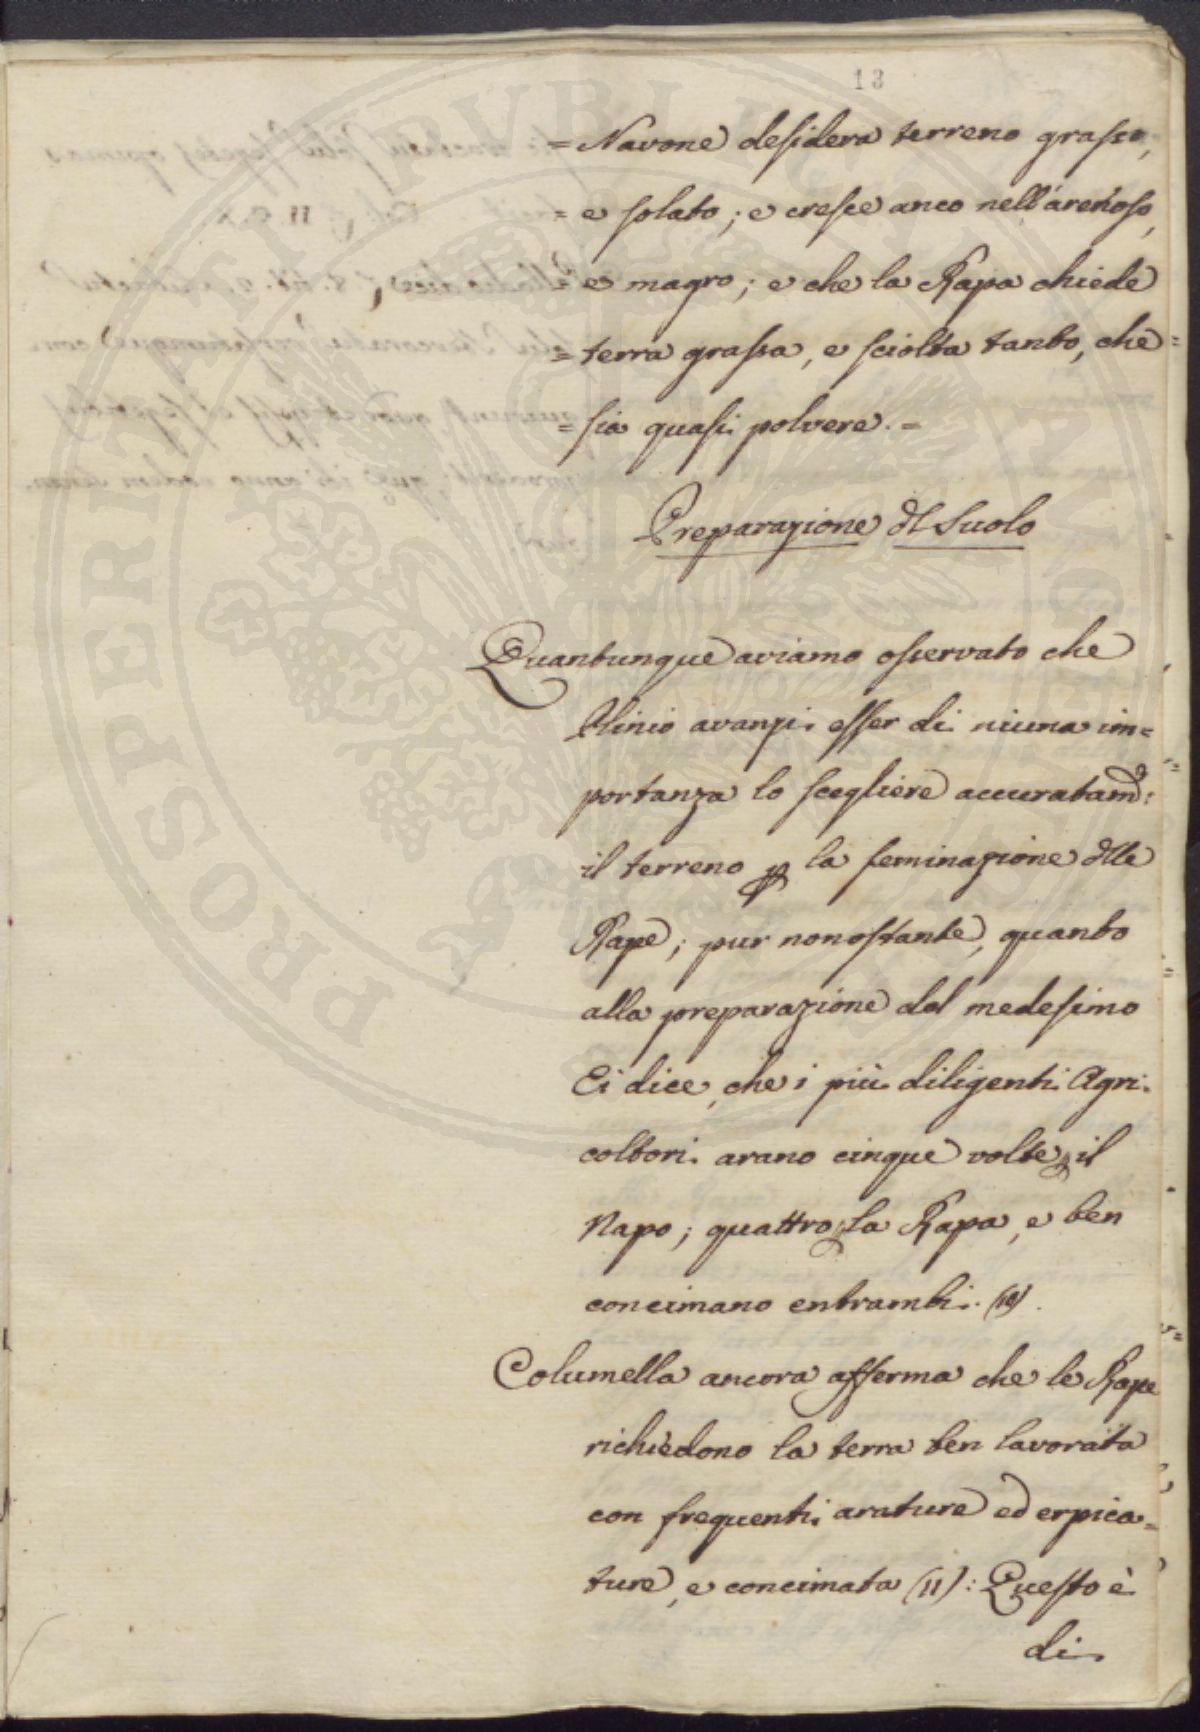 13
= Navone desidera terreno grasso,
= e solato; e cresce anco nell'arenoso,
= e magro; e che la Rapa chiede
= terra grassa, e sciolta tanto, che =
= sia quasi polvere. =
Preparazione dl Suolo
Quantunque aviamo osservato che
Plinio avanzi esser di niuna im=
portanza lo scegliere accuratam:
il terreno p la seminazione dlle
Rape; pur nonostante, quanto
alla preparazione del medesimo
Ei dice, che i più diligenti Agri:
coltori arano cinque volte p il
Napo; quattro p la Rapa, e ben
concimano entrambi. (10).
Columella ancora afferma che le Rape
richiedono la terra ben lavorata
con frequenti arature ed erpica=
ture, e concimata (11): Questo è
di
PROSPERITATI PVBLICAE AVGENDAE